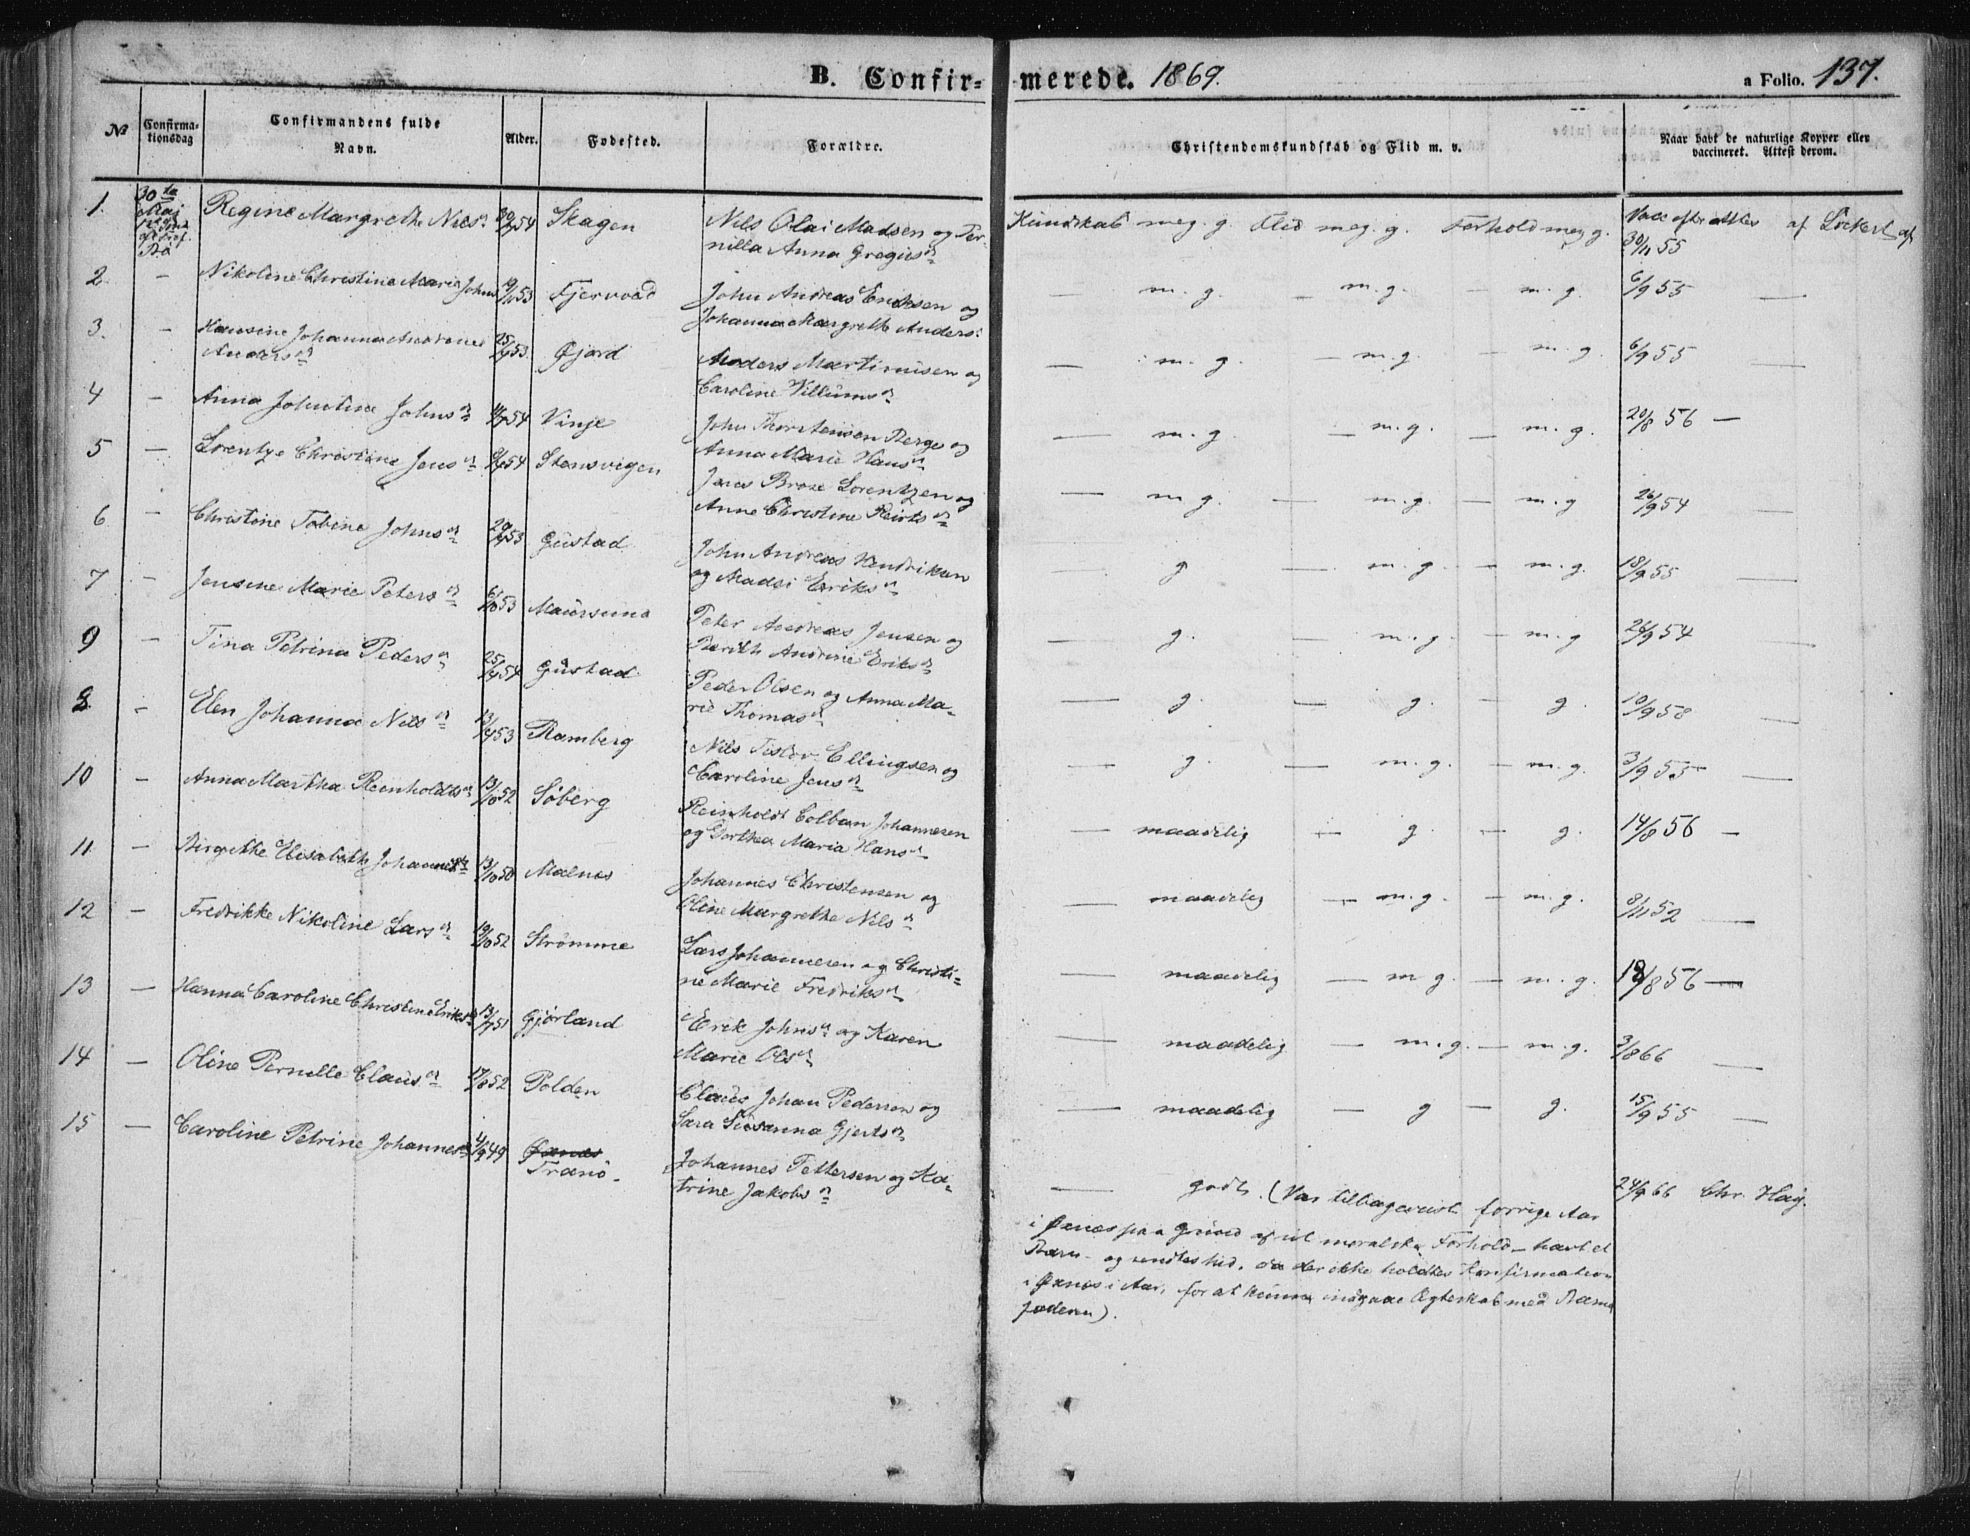 B. Confir- merede. 1869. a Folio. 137.
No Confirma-tionsdag Confirmandens fulde Navn. Alder. Fødested. Forældre. Christendomskundskab og Flid m. v. Naar havt de naturlige Kopper eller vaccineret. Attest derom.
1. 30te Maj Regine Margrethe Nilsd. 54 Skagen Nils Olai Madsen og Per- Kundskab meg. g. Flid meg. g. Forhold meg g. Vacc. efter attest af Lockert af
nilla Anna Gregusd. 30/11 55
2. - Nikoline Christina Maria Johns 53 Fjervold John Andreas Eriksen og — m. g. — m. g. — m. g. 6/9 55 —
Johanna Margrethe Anders.
3. - Hansine Johanna Andrine 25/ 53. Gjord Anders Martinusen og — m. g. — m. g — m. g. 6/9 55 —
Andersd. Caroline Villumsd.
4 - Anna Johntina Johnsd. 54 Vinje John Thorstensen Berge og — m. g. — m. g. — m. g. 20/8 56 —
Anna Marie Hansd.
5 - Lorentze Christine Jensd. 54 Stensvigen Jens Brose Lorentzen og — m g. — m. g. — m. g 26/9 54 —
Anne Christine Reirtsd.
6 - Christine Tobine Johnsd. 53 Gustad John Andreas Hendriksen — g — m. g. — m. g. 18/9 55 —
og Madsi Eriksd.
7 - Jensine Marie Petersd. 6/10 53 Maursund Peter Andreas Jensen og — g. — m. g — m. g 26/9 54 —
Berith Andrine Eriksd.
9 - Tina Petrina Pedersd. 25/ 54 Gustad Peder Olsen og Anna Ma- — g. g. — g. 10/9 58 —
rie Thomasd.
8 - Elen Johanna Nilsd. 13/ 53 Ramberg Nils Tislov Ellingsen og — g. — m. g. — m. g. 3/9 55 —
Caroline Jensd.
10 - Anna Martha Reinholdtsd. 13/10 52 Søberg Reinholdt Colban Johannesen — maadelig — g — g. 14/8 56 —
og Dorthea Maria Hansd.
11 - Birgithe Elisabeth Johannesd. 13/10 50 Malnes Johannes Christensen og — maadelig — m. g — m. g. 8/11 52 —
Oline Margrethe Nilsd.
12 - Fredrikke Nikoline Larsd. 19/10 52 Strømme Lars Johannesen og Christi- — maadelig — m g. — m. g. 18/8 56 —
ne Marie Fredriksd.
13 - Hanna Caroline Christine Eriksd. 13/7 51 Gjørland Erik Johnsn og Karen — maadelig — m. g. — m. g. 3/8 66 —
Marie Olsd.
14 - Oline Pernelle Clausd. 17/8 52 Polden Claus Johan Pederson og — maadelig — g — g. 15/9 55 —
Sara Susanna Gjertsd.
15 - Caroline Petrine Johannesd. 4/9 49 Øxnes Johannes Pettersen og Ka- — godt. (Var tilbageviist forrige Aar 24/9 66 Chr. Haij.
Trænø. trine Jakobsd.
i Øxnes paa Grund af sit moralske Forhold — havt et
Barn — og sendtes hid, da der ikke holdtes Konfirmation
i Øxnes i Aar, for at kunne indgaae Ægteskab med Barne
faderen).